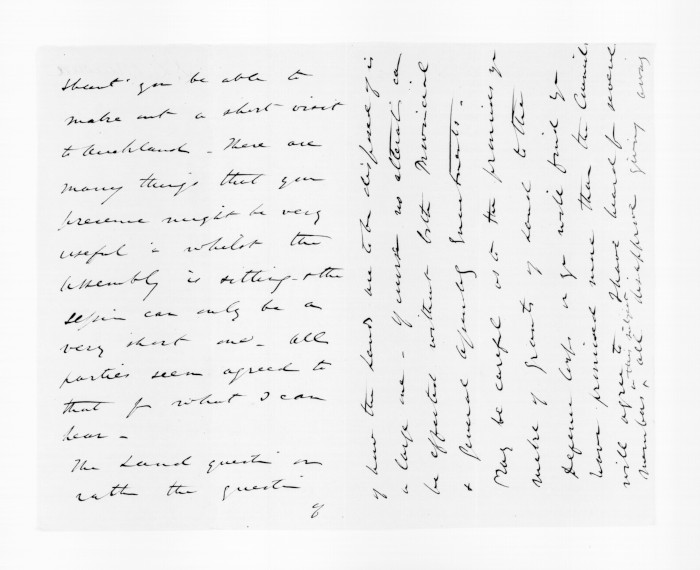 shant you be able to
make out a short visit
to Auckland - There are
many things that your
presence might be very
useful in whilst the
Assembly is sitting & the
session can only be a
very short one - all
parties seem agreed to
that fr what I can
hear -
The Land questi or
rath the questi
of
of how the Lands are to be disposed of is
a large one - Of course no alterati can
be effected without both Provincial
& General Assembly Enactments -
Pray be careful as to the promises you
make of grants of land to the
Defence Corps or you will find you
have promised more than the Council
will agree to I have heard of several
on this subject
members & all disapprove giving away